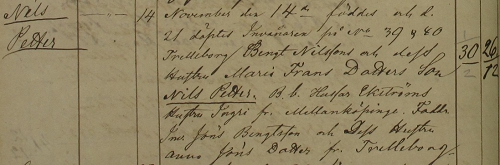 Nils
Petter
14 November den 14de föddes och d.
21 döptes Invånaren på No 39 & 40
Trelleborg Bengt Nilssons och dess
Hustru Maria Frans Dotters Son
Nils Petter. B. b. Husar Ekströms
Hustru Ingri fr. Mellanköpinge. Fadd.
Inv. Jöns Bengtsson och Dess Hustru
Anna Jöns Dotter fr. Trelleborg
30
26
12